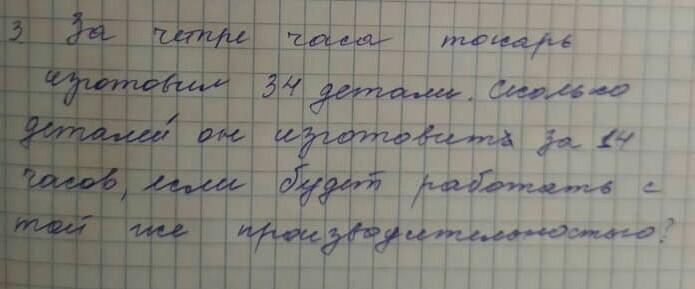 3 За четре часа токарь
изготовил 34 детали. Сколько
деталей он изготовить за 14
часов, если будет работать с
той же производительностью?